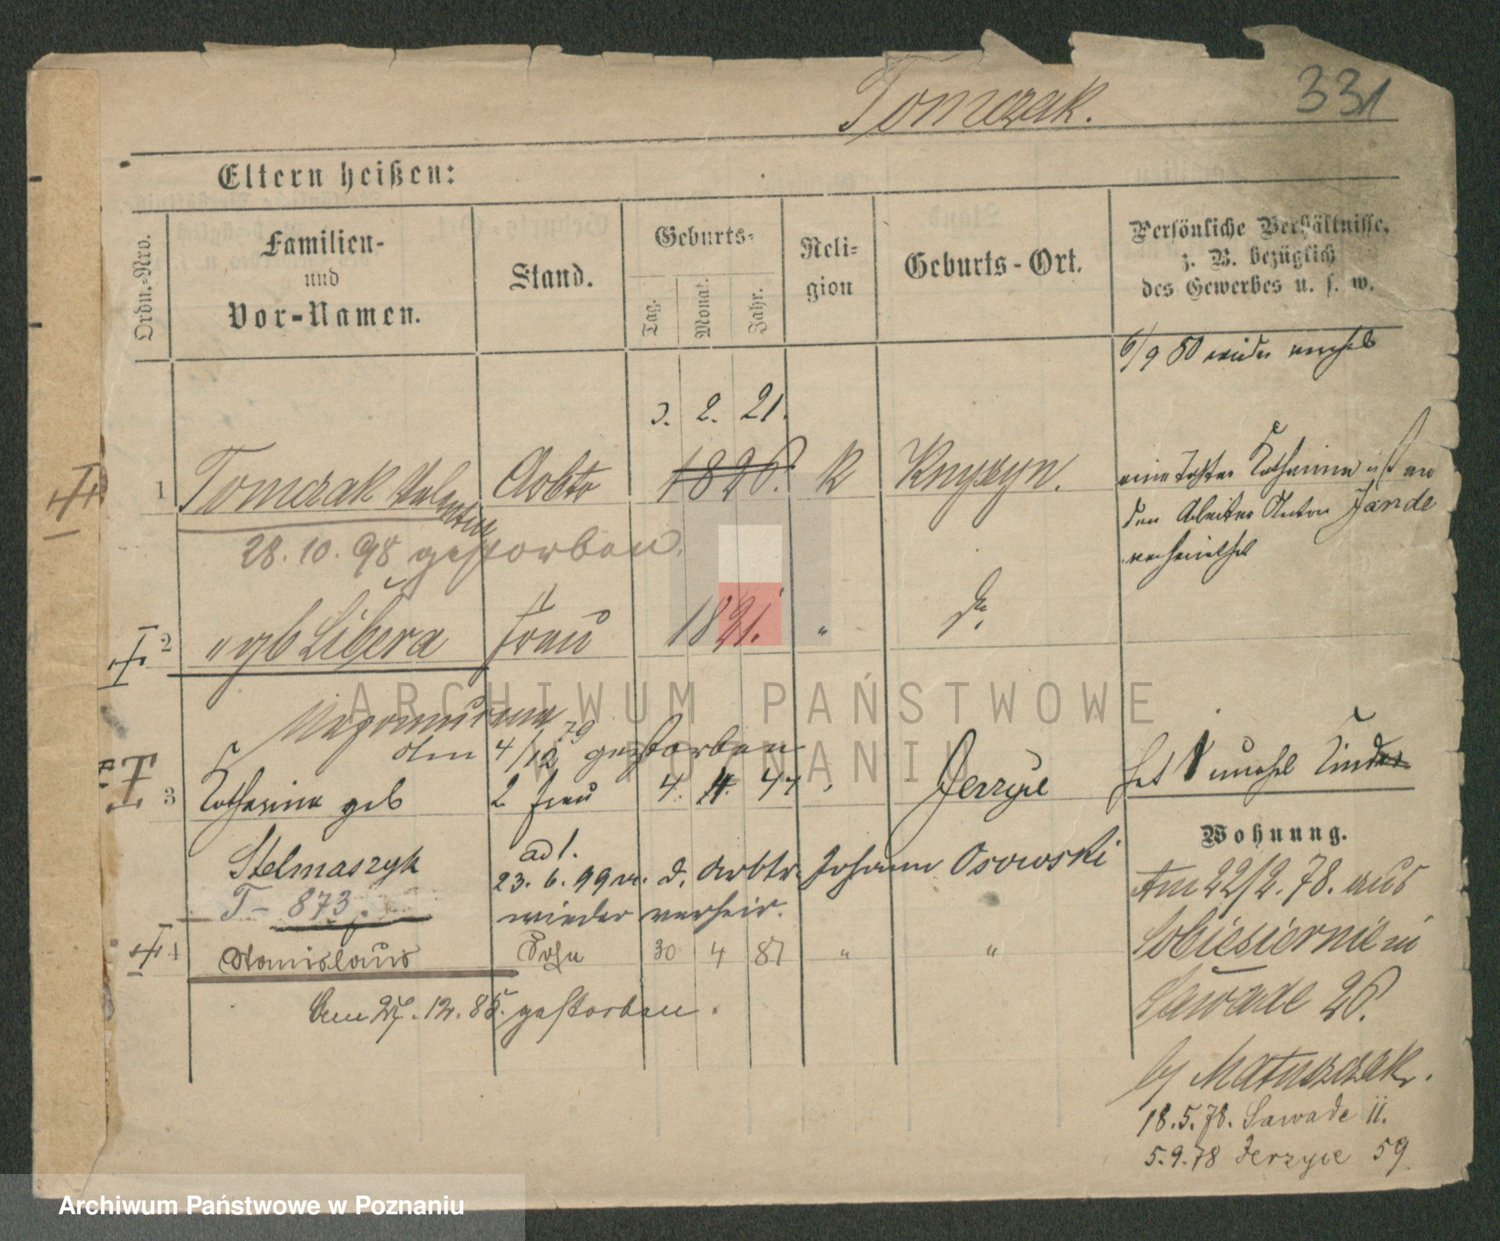 331
Tomczak.
Eltern heißen:
Ordn.-Nro.
Familien-
und
Vor-Namen.
Stand.
Geburts-
Tag.
Monat.
Jahr.
Reli-
gion
Geburts-Ort.
Persönliche Verhältnisse,
z. B. bezüglich
des Gewerbes u. s. w.
6/9 80 wieder
3. 2. 21.
1 Tomczak Valentin Arbtr 1826. k Knyszyn.
eine Tochter Katharina ist an
den Arbeiter Anton Jande
verheirathet
28. 10. 98 gestorben.
2 " gb Libera Frau 1821. " do.
Nepomucena
am 4/12 79 gestorben
3 Katharina geb 2 Frau 4. 11. 47 " Jerzyce
hat 1 unehel Kind
Stelmaszyk
ad 1.
23. 6. 99 m. d. Arbtr. Johann Osowski
wieder verheir.
T- 873.
4 Stanislaus Sohn 30 4 81 " "
Am 27. 12. 85. gestorben.
Wohnung.
Am 22/2. 78. aus
Sobiesiernie in
Sawade 26.
by Matuszak.
18. 5. 78. Sawade 11.
5. 9. 78 Jerzyce 59.
ARCHIWUM PAŃSTWOWE
W POZNANIU
Archiwum Państwowe w Poznaniu